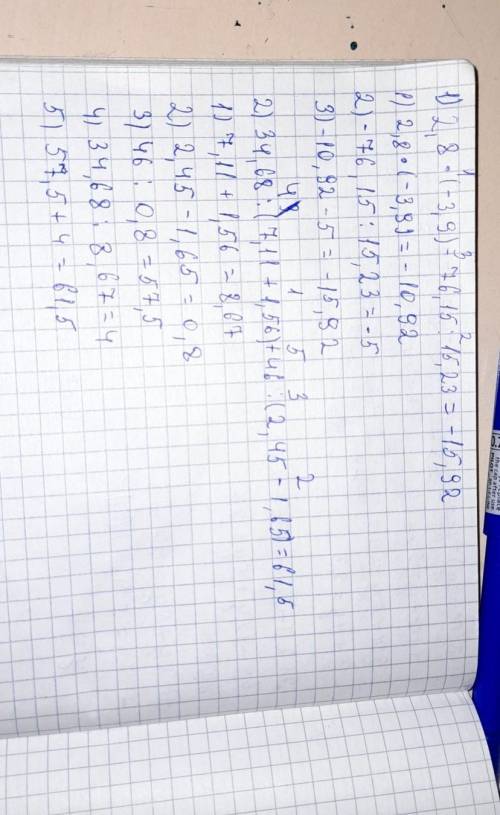 1) 2,8 · (-3,9) + 76,15 : 15,23 = -15,92
1) 2,8 · (-3,9) = -10,92
2) -76,15 : 15,23 = -5
3) -10,92 - 5 = -15,92
4 1 5 3 2
2) 34,68 : (7,11 + 1,56) + 46 : (2,45 - 1,65) = 61,5
1) 7,11 + 1,56 = 8,67
2) 2,45 - 1,65 = 0,8
3) 46 : 0,8 = 57,5
4) 34,68 : 8,67 = 4
5) 57,5 + 4 = 61,5